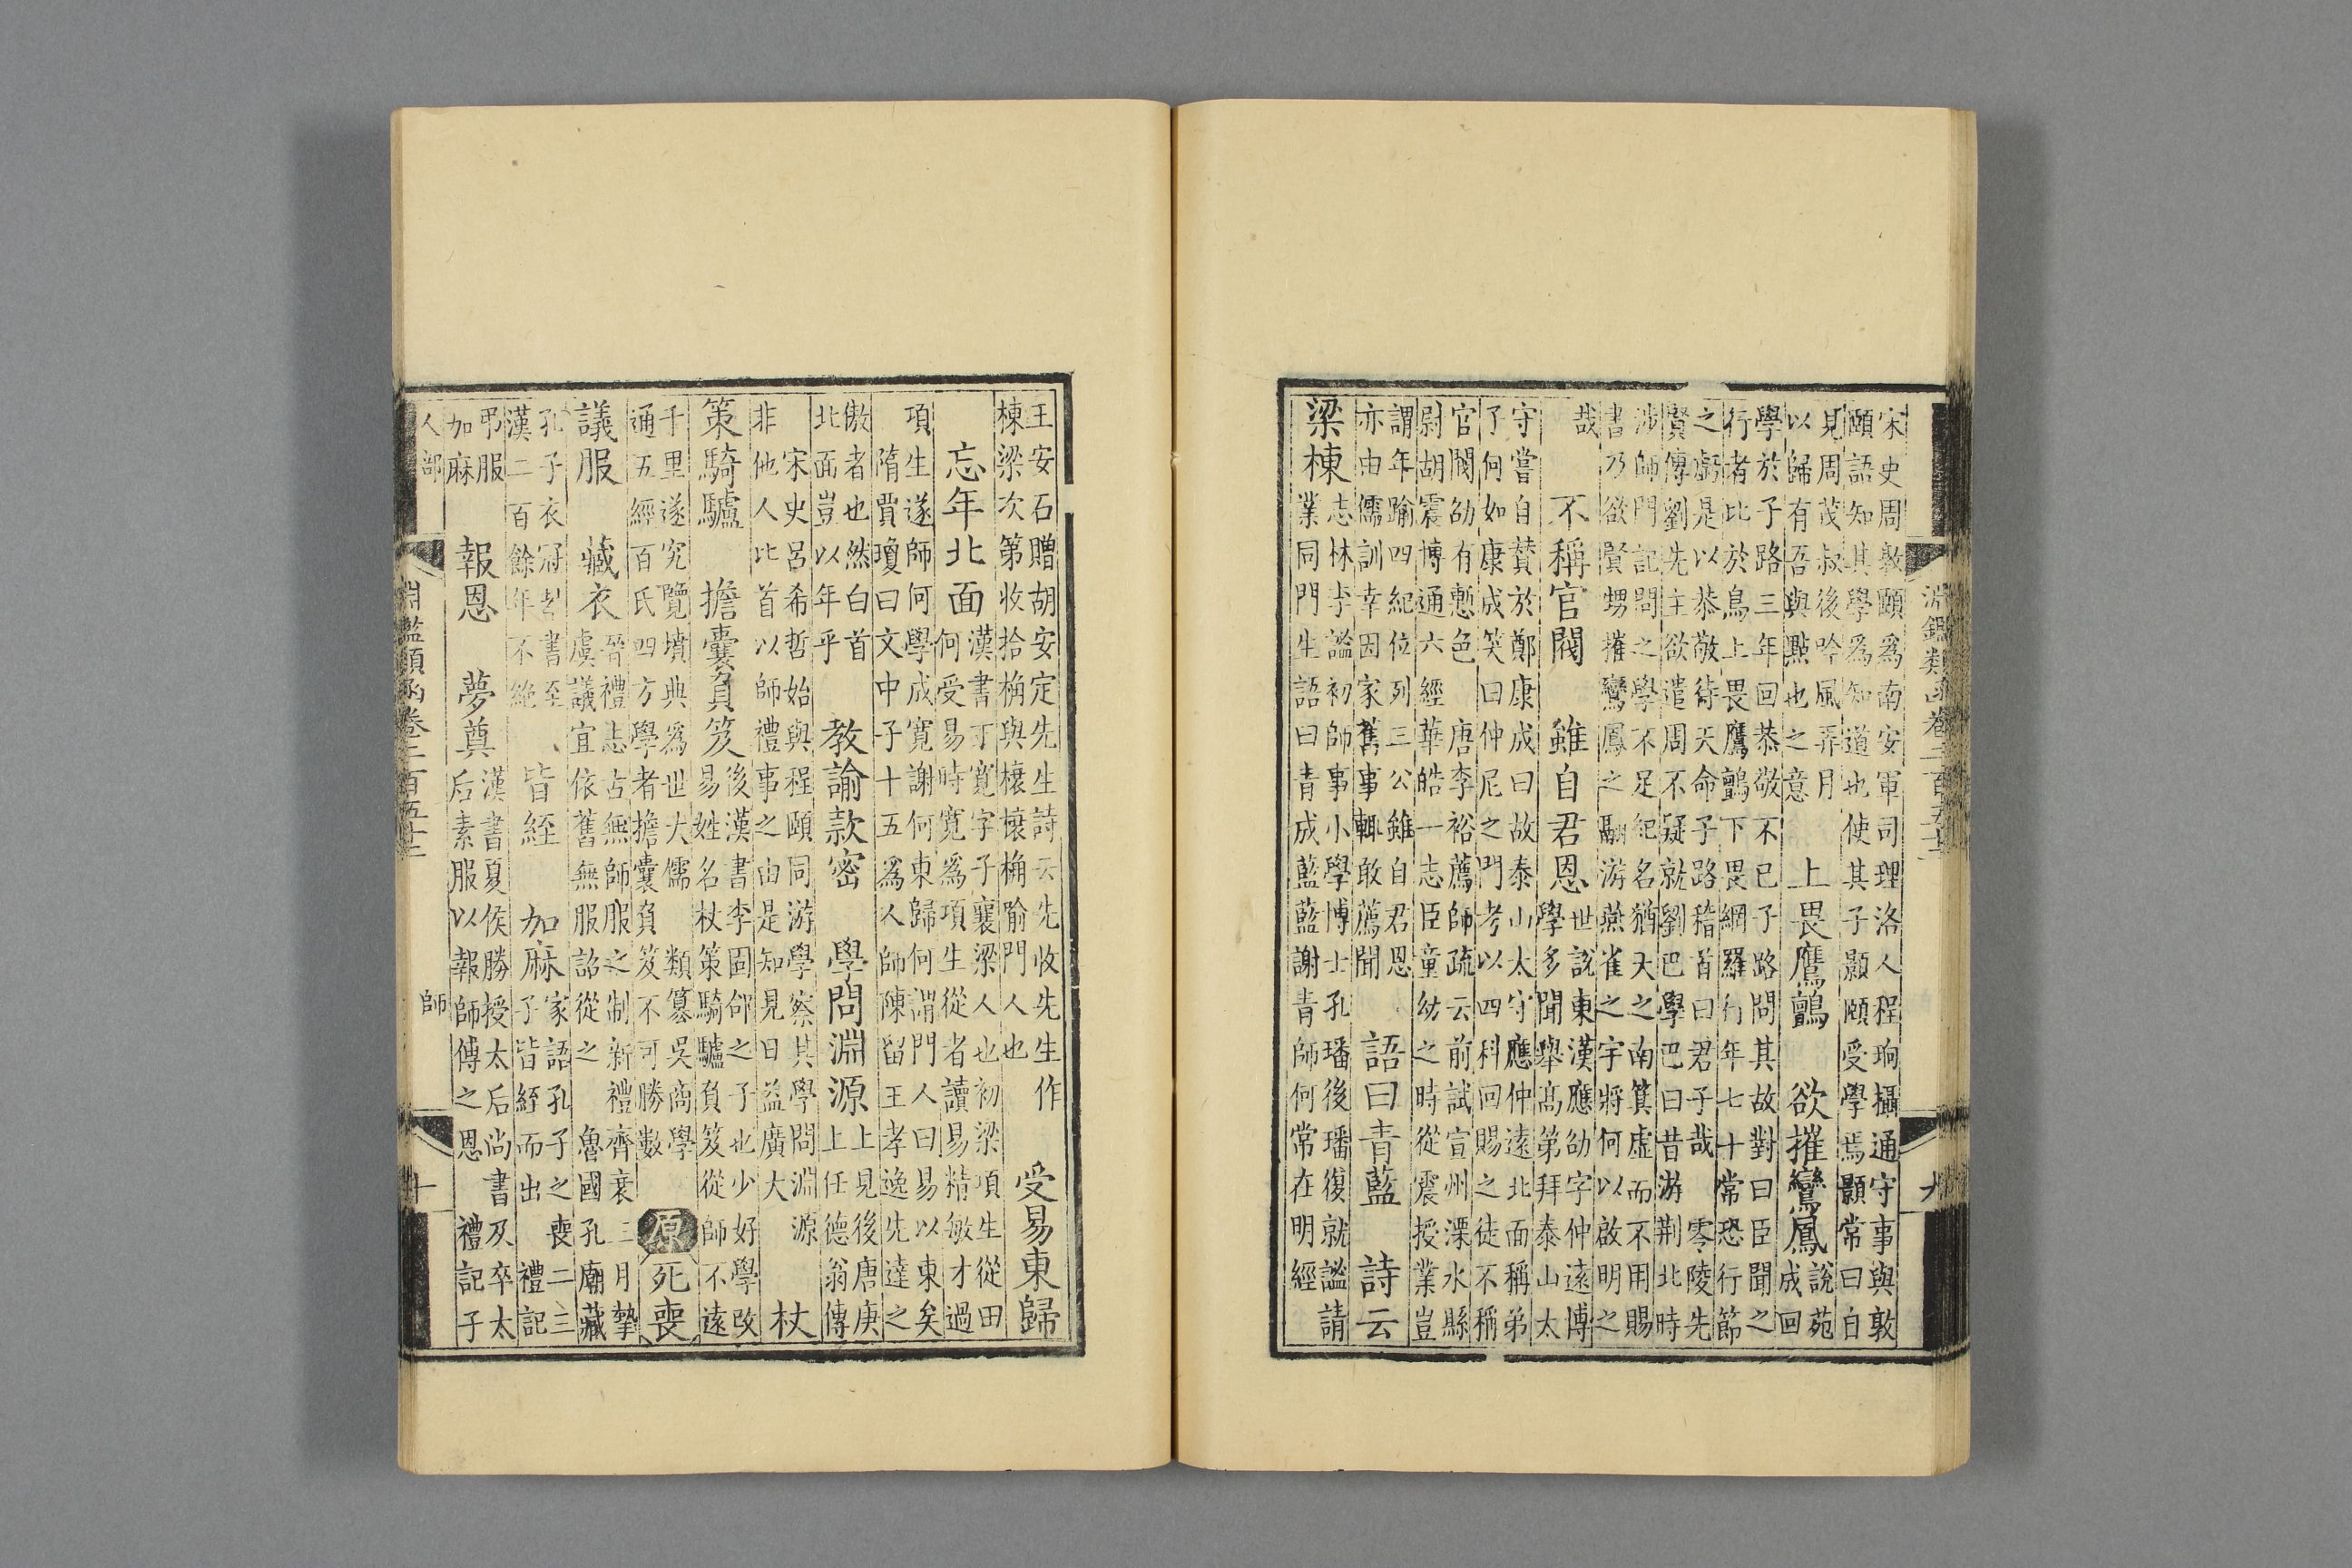 宋史周敦頤為南安軍司理洛人程珦攝通守事與敦
頤語知其學為知道也使其子顥頤受學焉顥常曰自
見周茂叔後吟風弄月
以歸有吾與點也之意
上畏鷹鸇
欲摧鸞鳳
說苑
成回
學於子路三年回恭敬不已子路問其故對曰臣聞之
行者比於鳥上畏鷹鸇下畏網羅行年七十常恐行節
之虧是以恭敬待天命子路稽首曰君子哉
零陵先
賢傳劉先主欲遣周不疑就劉巴學巴曰昔游荆北時
涉師門記問之學不足紀名猶天之南箕虛而不用賜
書乃欲賢甥摧鸞鳳之翮游燕雀之宇將何以啟明之
哉
不稱官閥
雖自君恩
世說東漢應劭字仲遠博
學多聞舉高第拜泰山太
守嘗自贊於鄭康成曰故泰山太守應仲遠北面稱弟
子何如康成笑曰仲尼之門考以四科回賜之徒不稱
官閥劭有慙色
唐李裕薦師疏云前試宣州溧水縣
尉胡震博通六經華皓一志臣童幼之時從震授業豈
謂年踰四紀位列三公雖自君恩
亦由儒訓幸因家舊事輒敢薦聞
語曰青藍
詩云
梁棟
志林李謐初師事小學博士孔璠後璠復就謐請
業同門生語曰青成藍藍謝青師何常在明經
王安石贈胡安定先生詩云先收先生作
棟梁次第收拾桷與榱榱桷踰門人也
受易東歸
忘年北面
漢書丁寬字子襄梁人也初梁項生從田
何受易時寬為項生從者讀易精敏才過
項生遂師何學成寬謝何東歸何謂門人曰易以東矣
隋賈瓊曰文中子十五為人師陳留王孝逸先達之
傲者也然白首
北面豈以年乎
教諭款密
學問淵源
上見後唐庚
上任德翁傳
宋史呂希哲始與程頤同游學察其學問淵源
非他人比首以師禮事之由是知見日益廣大
杖
策騎驢
擔囊負笈
後漢書李固郃之子也少好學改
易姓名杖策騎驢負笈從師不遠
千里遂究覽墳典為世大儒
類纂吳商學
通五經百氏四方學者擔囊負笈不可勝數
原
死喪
議服
藏衣
晉禮志古無師服之制新禮齊衰三月摯
虞議宜依舊無服詔從之
魯國孔廟藏
孔子衣冠琴書至
漢二百餘年不絶
皆絰
加麻
家語孔子之喪二三
子皆絰而出
禮記
弔服
加麻
報恩
夢奠
漢書夏侯勝授太后尚書及卒太
后素服以報師傅之恩
禮記子
人部
師
淵鑑類函卷二百五十三
十